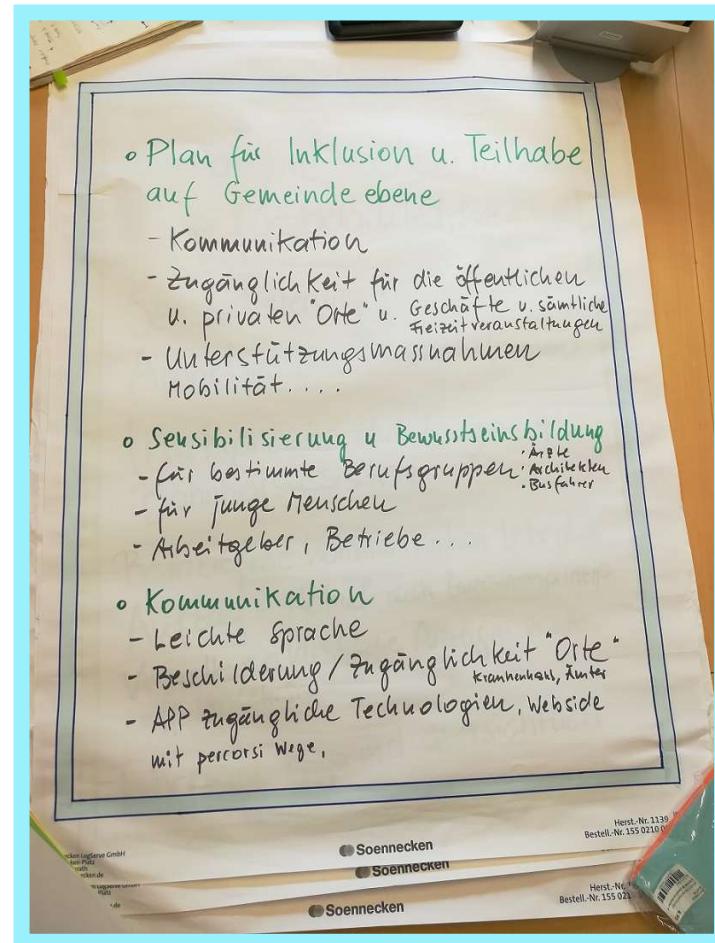 o Plan für Inklusion u. Teilhabe
auf Gemeindeebene
- Kommunikation
- Zugänglichkeit für die öffentlichen
u. privaten "Orte" u. Geschäfte u. sämtliche
Freizeitveranstaltungen
- Unterstützungsmassnahmen
Mobilität....
o Sensibilisierung u Bewusstseinsbildung
- für bestimmte Berufsgruppen: · Ärzte
· Architekten
· Busfahrer
- für junge Menschen
- Arbeitgeber, Betriebe...
o Kommunikation
- Leichte Sprache
- Beschilderung / Zugänglichkeit "Orte"
Krankenhaus, Ämter
- APP zugängliche Technologien, Webside
mit percorsi Wege,
Herst.-Nr. 1139
Bestell.-Nr. 155 0210
LogServe GmbH
Soennecken
Soennecken
Herst.-Nr.
Bestell.-Nr. 155
Soennecken